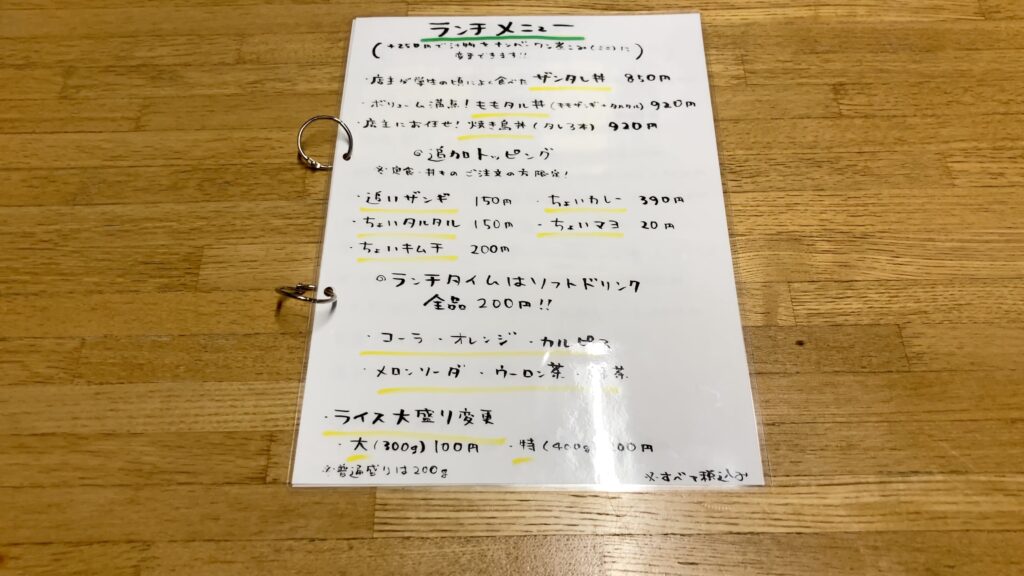 ランチメニュー
(+250円で汁物を
変更できます!!)
・店主が学生の頃によく食べた ザンタレ丼 850円
・ボリューム満点! ももタル丼 (ももザンギ+タルタル) 920円
・店主にお任せ! 焼き鳥丼 (タレ3本) 920円
◎追加トッピング
※定食・丼ものご注文の方限定!
・追いザンギ 150円 ・ちょいカレー 390円
・ちょいタルタル 150円 ・ちょいマヨ 20円
・ちょいキムチ 200円
◎ランチタイムはソフトドリンク
全品200円!!
・コーラ ・オレンジ ・カルピス
・メロンソーダ ・ウーロン茶 茶
・ライス大盛り変更
・大(300g)100円 ・特(400g) 00円
※普通盛りは200g
※すべて税込み